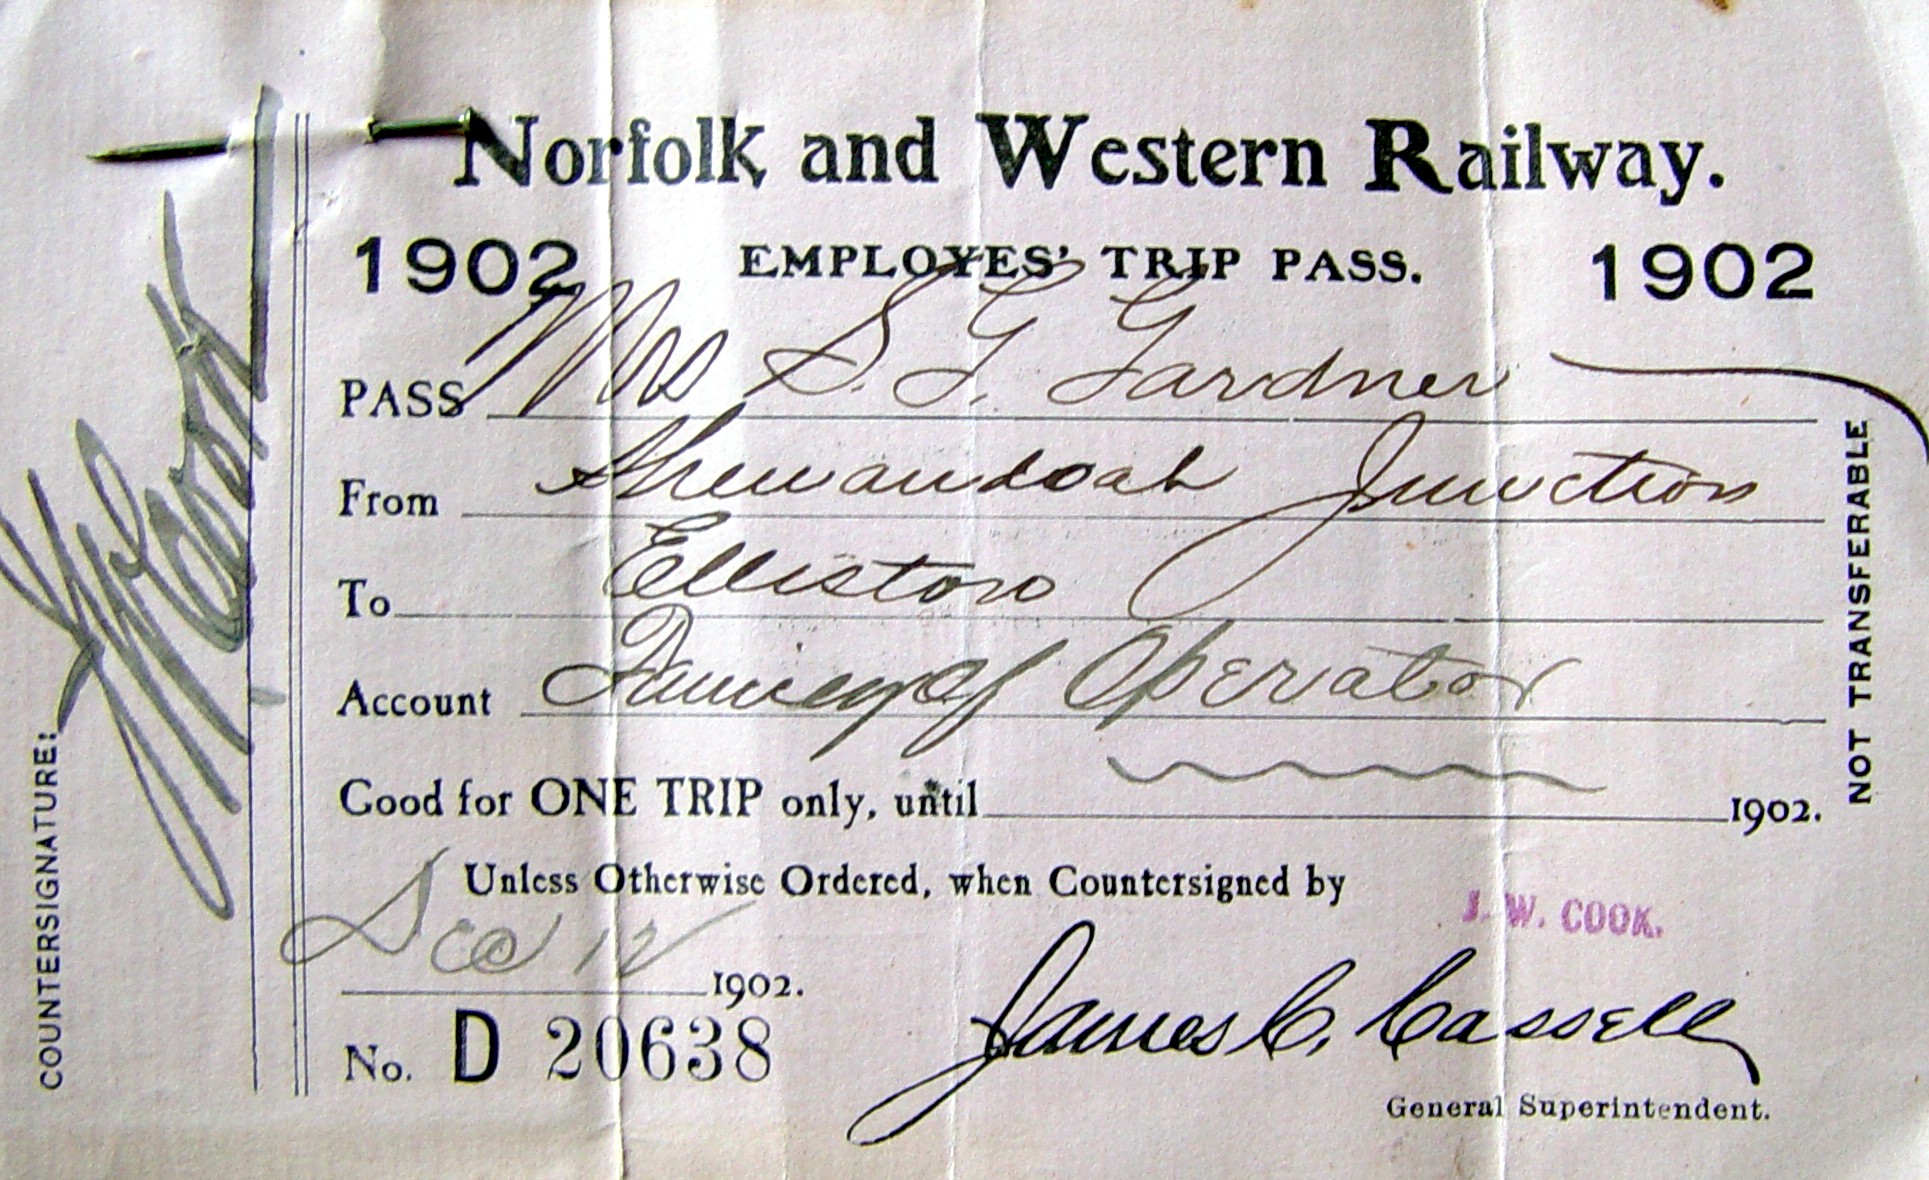 Norfolk and Western Railway.
1902 EMPLOYES' TRIP PASS. 1902
PASS Mrs S. G. Gardner
From Shenandoah Junction
To Elliston
Account Family of Operator
Good for ONE TRIP only, until 1902.
Unless Otherwise Ordered, when Countersigned by
J. W. COOK.
Dec 12 1902.
No. D 20638
James C. Cassell
General Superintendent.
COUNTERSIGNATURE:
JWCook
NOT TRANSFERABLE